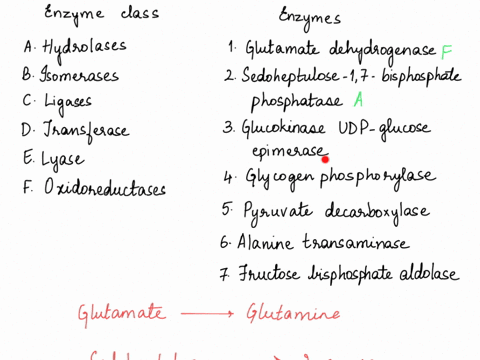 Enzyme class
A. Hydrolases
B. Isomerases
C. Ligases
D. Transferase
E. Lyase
F. Oxidoreductases
Enzymes
1. Glutamate dehydrogenase F
2. Sedoheptulose-1,7-bisphosphate
phosphatase A
3. Glucokinase UDP-glucose
epimerase
4. Glycogen phosphorylase
5. Pyruvate decarboxylase
6. Alanine transaminase
7 Fructose bisphosphate aldolase
Glutamate → Glutamine